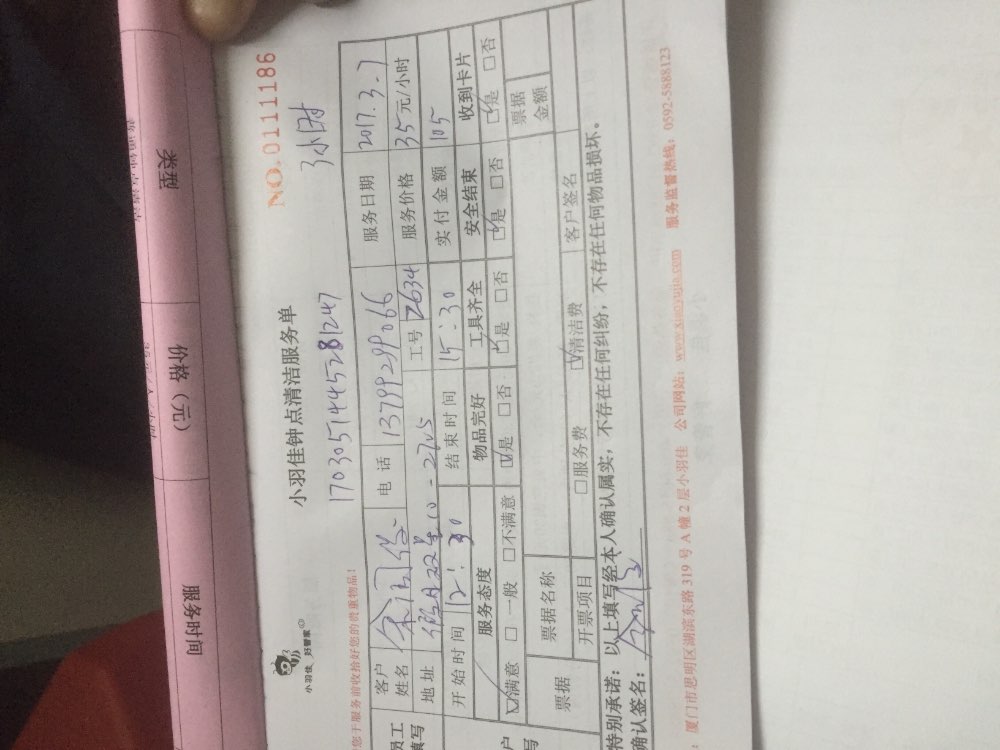 类型
价格（元）
服务时间
NO.0111186
3小时
小羽佳钟点清洁服务单
1703051445281247
小羽佳 好管家
您于服务前收拾好您的贵重物品！
客户姓名 电话 13799299066 服务日期 2017.3.7
地址 -2705 工号 2634 服务价格 35元/小时
开始时间 12:30 结束时间 15:30 实付金额 105
服务态度 物品完好 工具齐全 安全结束 收到卡片
☑满意 □一般 □不满意 ☑是 □否 ☑是 □否 ☑是 □否 ☑是 □否
票据 票据名称 票据金额
开票项目 □服务费 ☑清洁费 客户签名
特别承诺：以上填写经本人确认属实，不存在任何纠纷，不存在任何物品损坏。
确认签名：
：厦门市思明区湖滨东路 319 号 A 幢 2 层小羽佳 公司网站：www.xiaoyujia.com 服务监督热线：0592-5888123